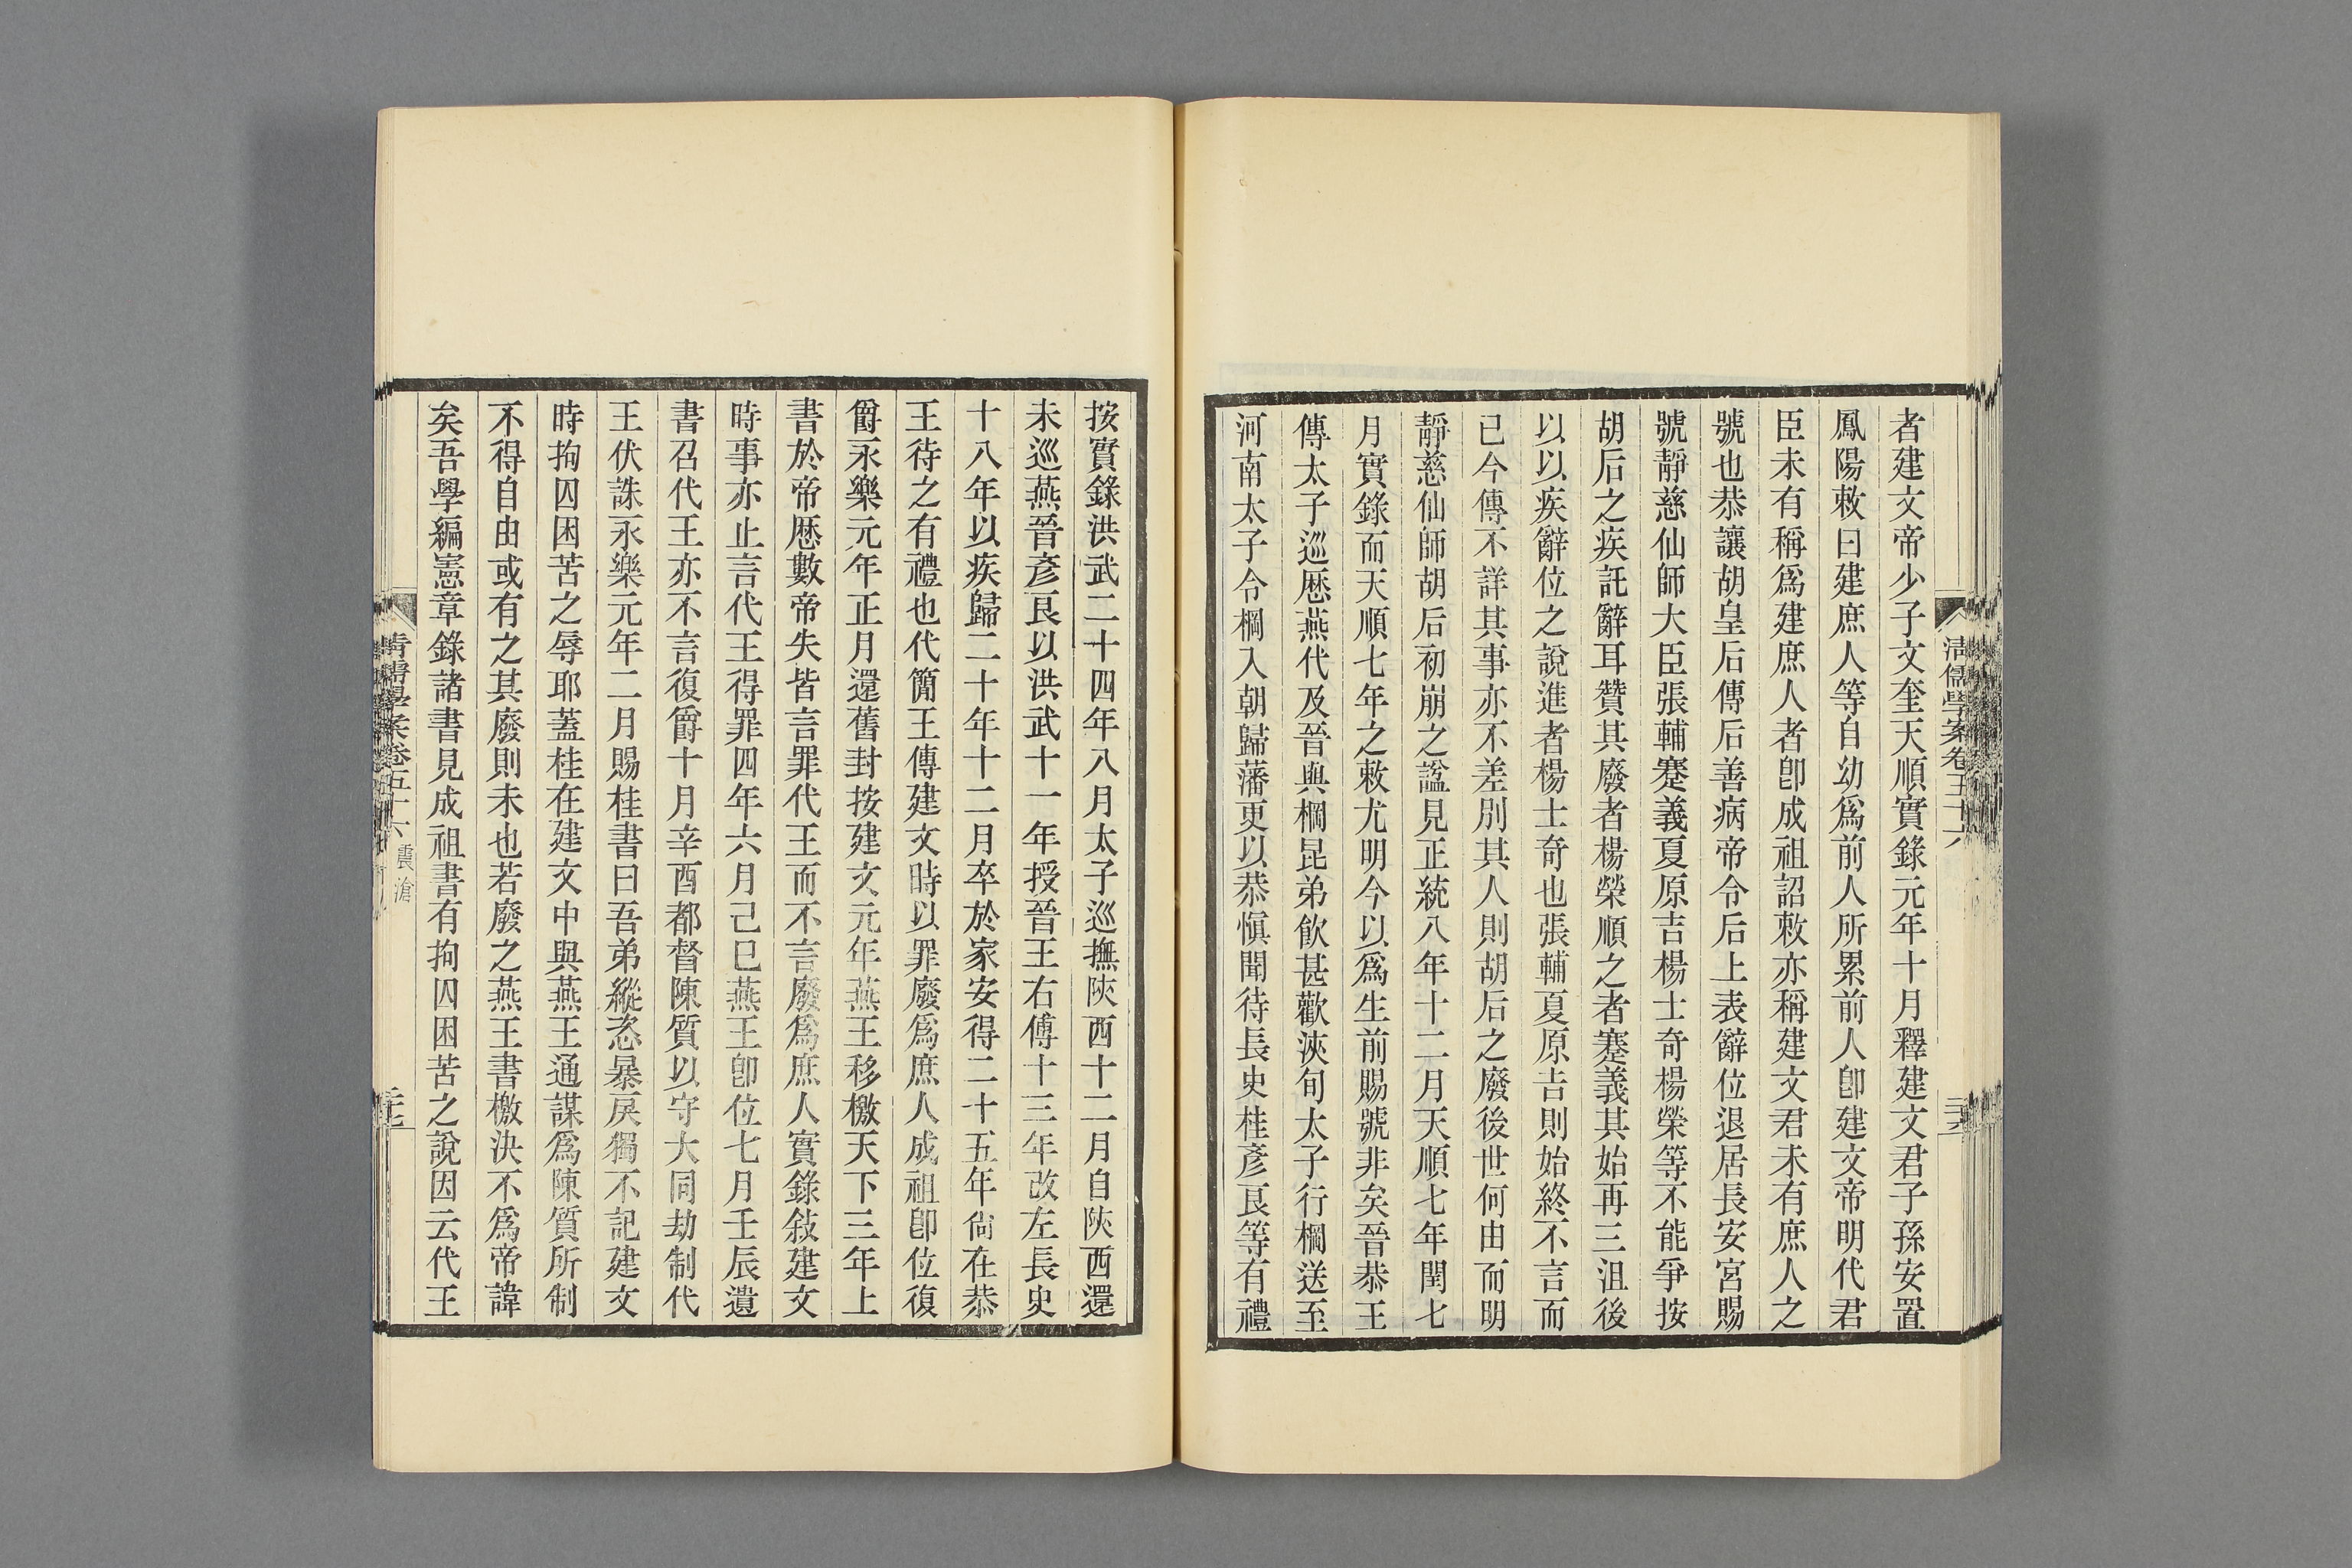 清儒學案卷五十六
者建文帝少子文奎天順實錄元年十月釋建文君子孫安置
鳳陽敕曰建庶人等自幼爲前人所累前人卽建文帝明代君
臣未有稱爲建庶人者卽成祖詔敕亦稱建文君未有庶人之
號也恭讓胡皇后傳后善病帝令后上表辭位退居長安宮賜
號靜慈仙師大臣張輔蹇義夏原吉楊士奇楊榮等不能爭按
胡后之疾託辭耳贊其廢者楊榮順之者蹇義其始再三沮後
以以疾辭位之說進者楊士奇也張輔夏原吉則始終不言而
已今傳不詳其事亦不差別其人則胡后之廢後世何由而明
靜慈仙師胡后初崩之謚見正統八年十二月天順七年閏七
月實錄而天順七年之敕尤明今以爲生前賜號非矣晉恭王
傳太子巡歷燕代及晉與棡昆弟飲甚歡浹旬太子行棡送至
河南太子令棡入朝歸藩更以恭愼聞待長史桂彥良等有禮
按實錄洪武二十四年八月太子巡撫陝西十二月自陝西還
未巡燕晉彥良以洪武十一年授晉王右傅十三年改左長史
十八年以疾歸二十年十二月卒於家安得二十五年尙在恭
王待之有禮也代簡王傳建文時以罪廢爲庶人成祖卽位復
爵永樂元年正月還舊封按建文元年燕王移檄天下三年上
書於帝歷數帝失皆言罪代王而不言廢爲庶人實錄敍建文
時事亦止言代王得罪四年六月己巳燕王卽位七月壬辰遺
書召代王亦不言復爵十月辛酉都督陳質以守大同劫制代
王伏誅永樂元年二月賜桂書曰吾弟縱恣暴戾獨不記建文
時拘囚困苦之辱耶蓋桂在建文中與燕王通謀爲陳質所制
不得自由或有之其廢則未也若廢之燕王書檄決不爲帝諱
矣吾學編憲章錄諸書見成祖書有拘囚困苦之說因云代王
清儒學案卷五十六 震滄